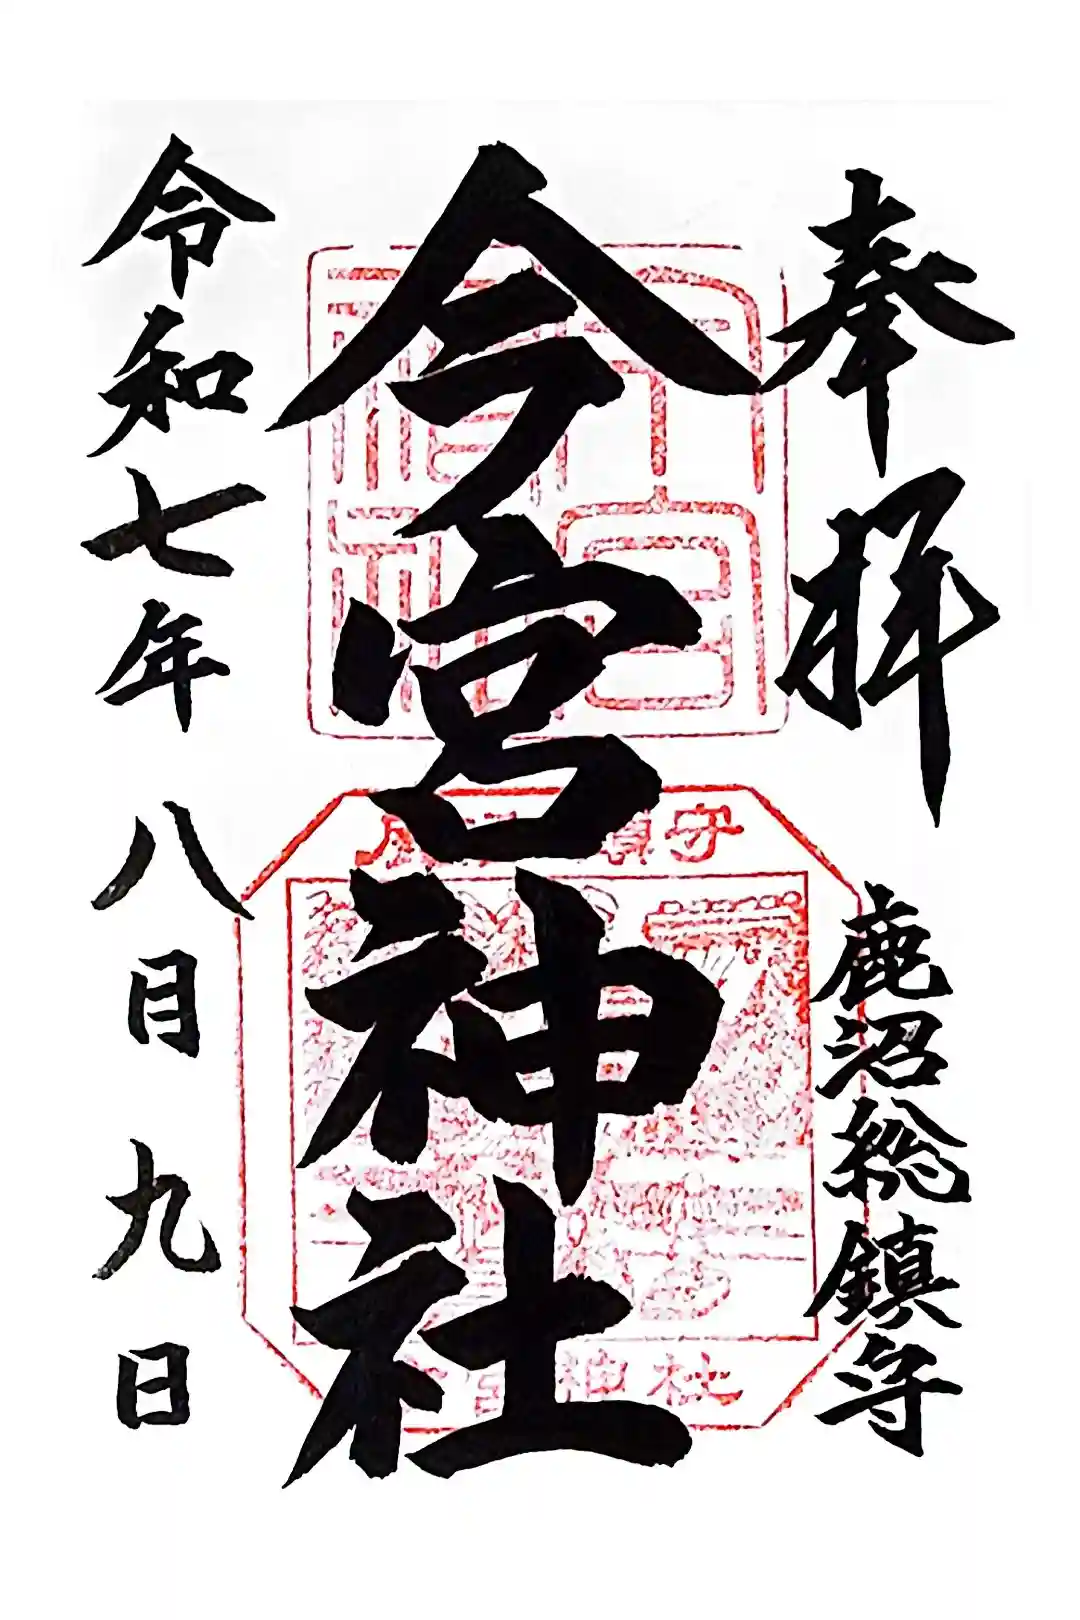 奉拝
鹿沼総鎮守
今宮神社
令和七年八月九日
鎮守
宮神社